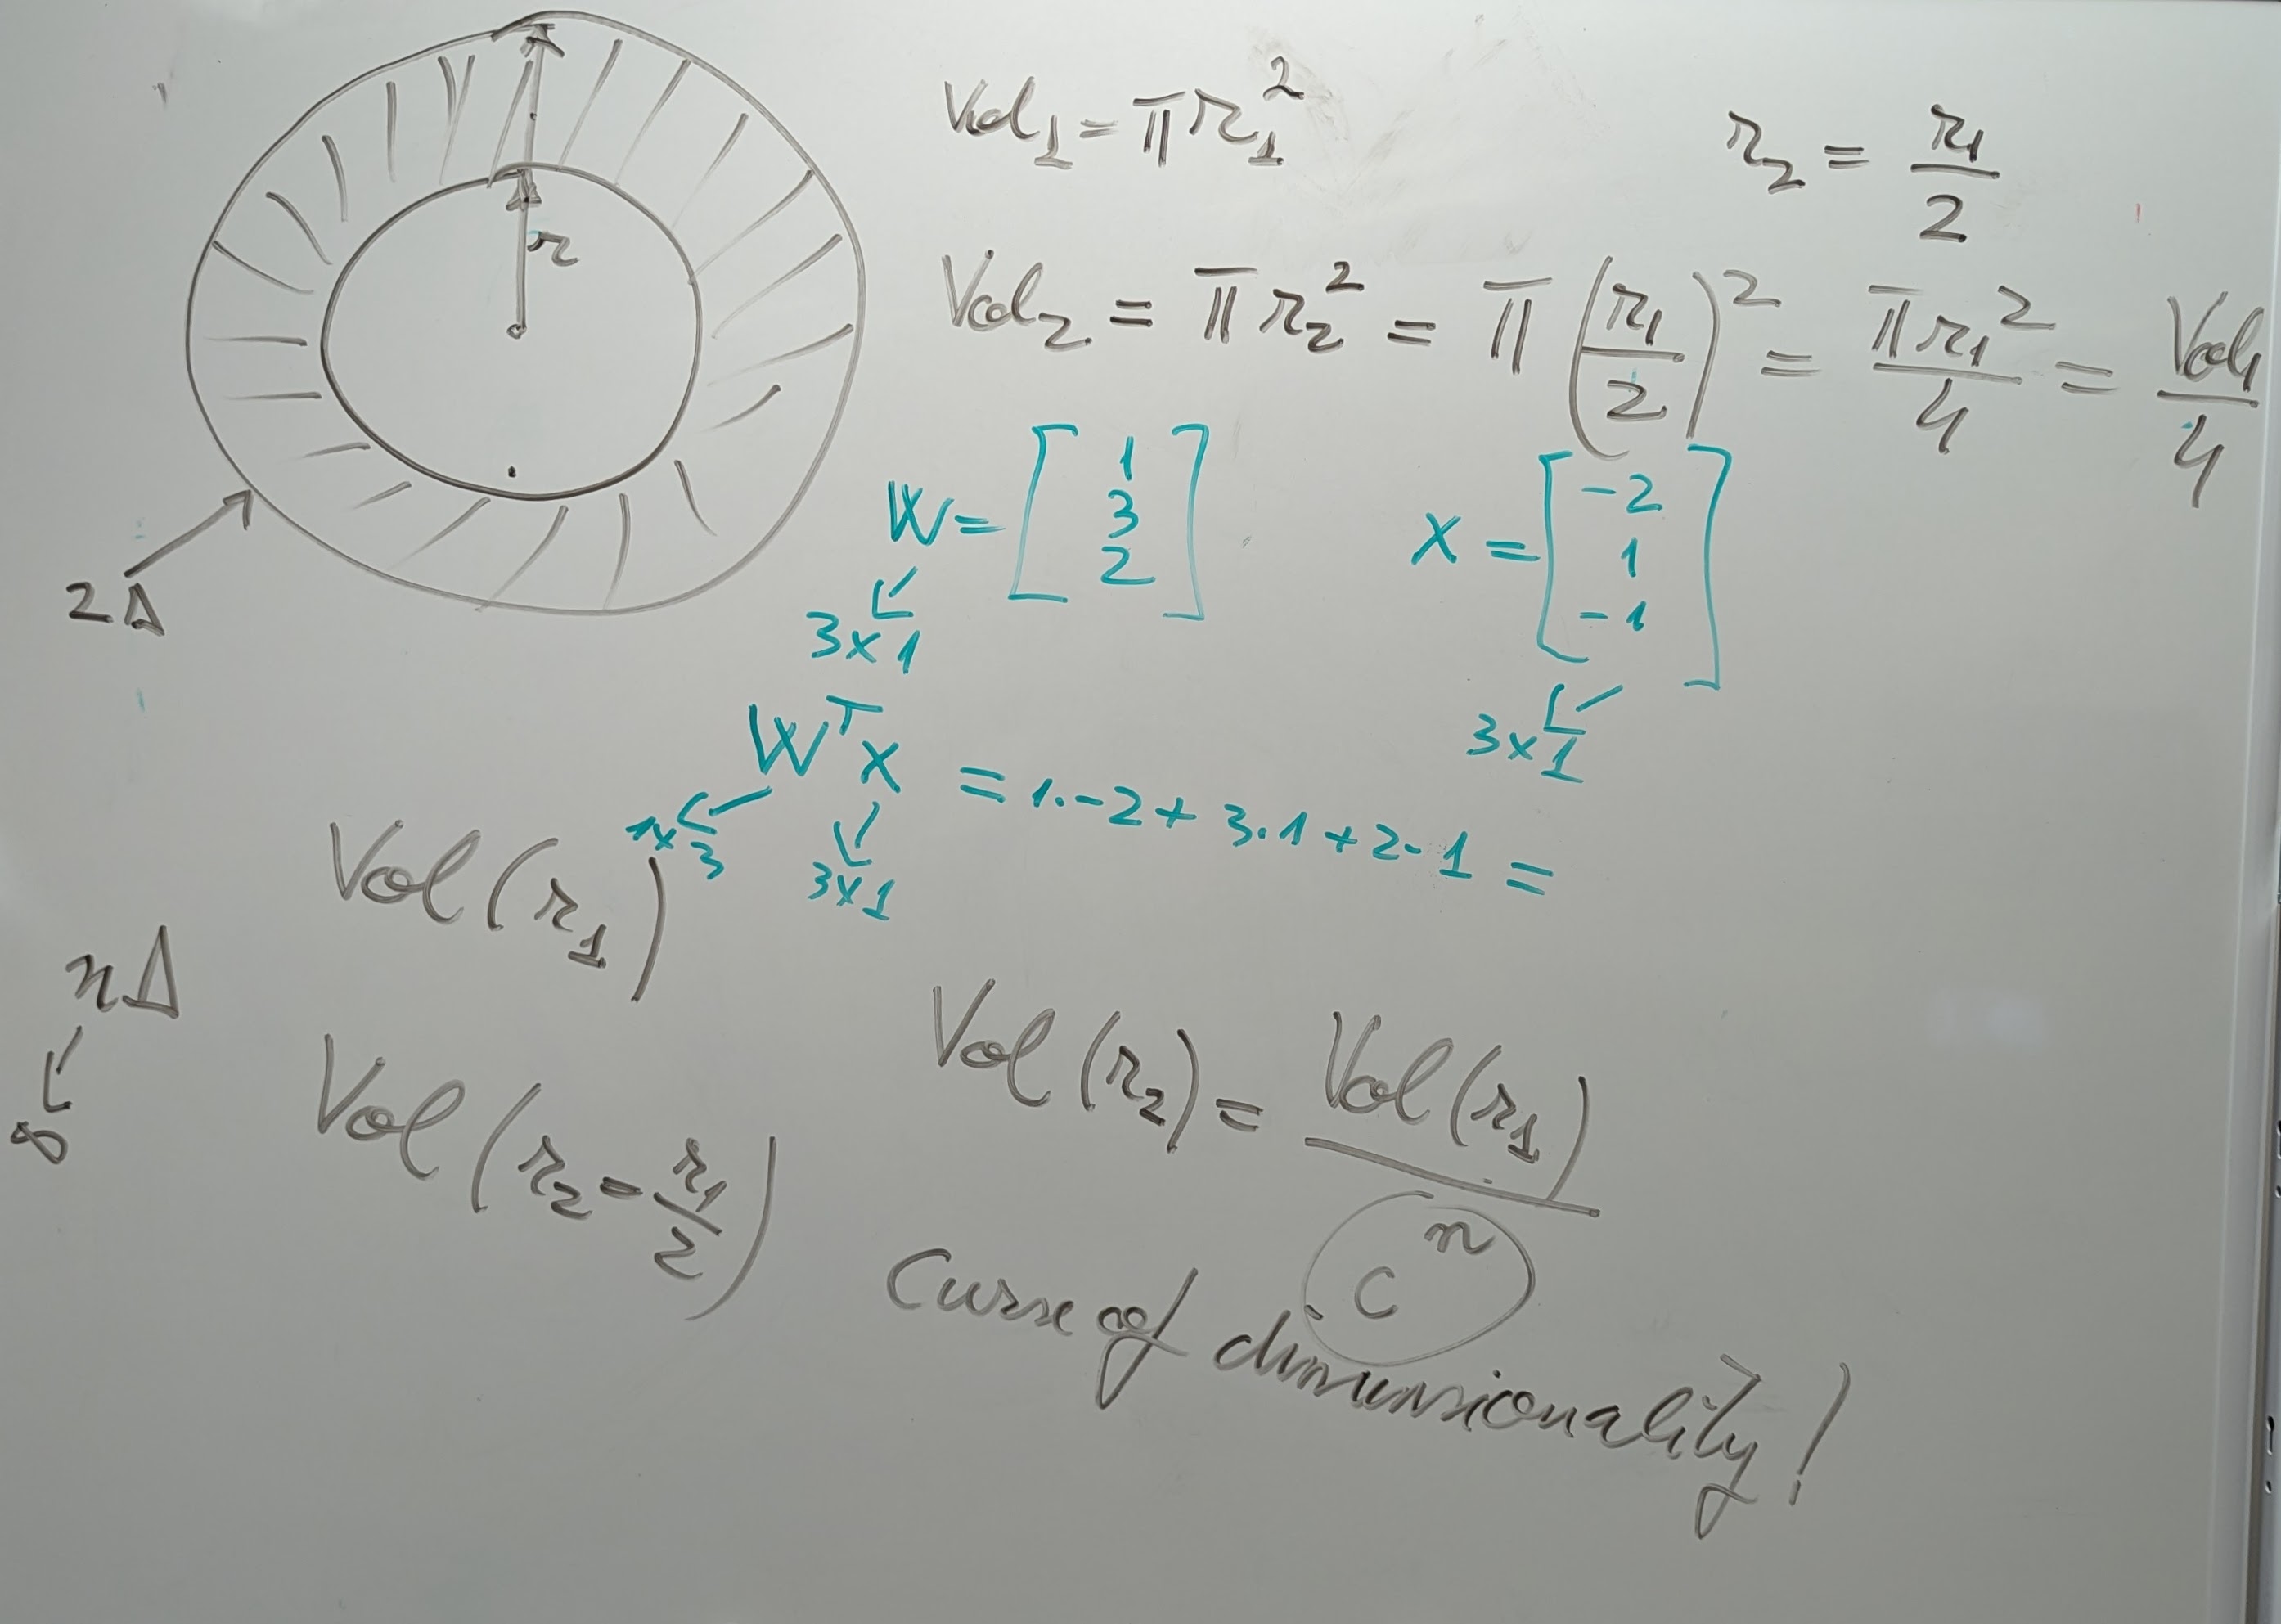 r
2Δ
Vol₁ = πr₁²
r₂ = r₁/2
Vol₂ = πr₂² = π(r₁/2)² = πr₁²/4 = Vol₁/4
W = [1 3 2]
3x1
x = [-2 1 -1]
3x1
Wᵀx = 1·-2 + 3·1 + 2·1 =
1x3
3x1
Vol(r₁)
nΔ
∞
Vol(r₂ = r₁/2)
Vol(r₂) = Vol(r₁)/cⁿ
Curse of dimensionality!